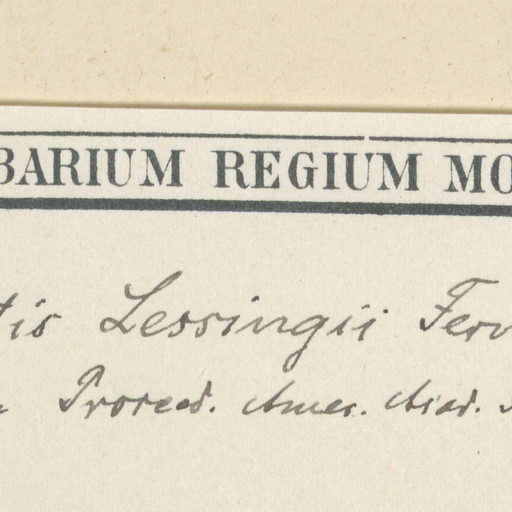 BARIUM REGIUM MO
tis Lessingii Fer
Proceed. Amer. Acad.